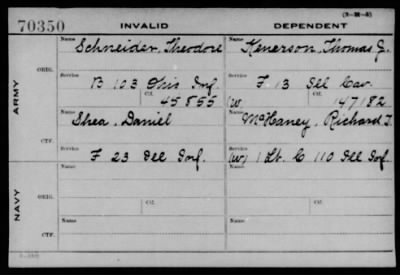 (3-388)
70350 INVALID DEPENDENT
Name Schneider, Theodore Name Kenerson, Thomas G.
ARMY
ORIG. Service B 103 Ohio Inf. Service F 13 Ill Cav.
Ctf. 45855 (W) Ctf. 147182
Name Shea, Daniel Name McHaney, Richard T.
CTF. Service F 23 Ill Inf. Service (W) 1 Lt. C 110 Ill Inf.
NAVY
Name Name
ORIG. Service Service
Ctf. Ctf.
Name Name
CTF. Service Service